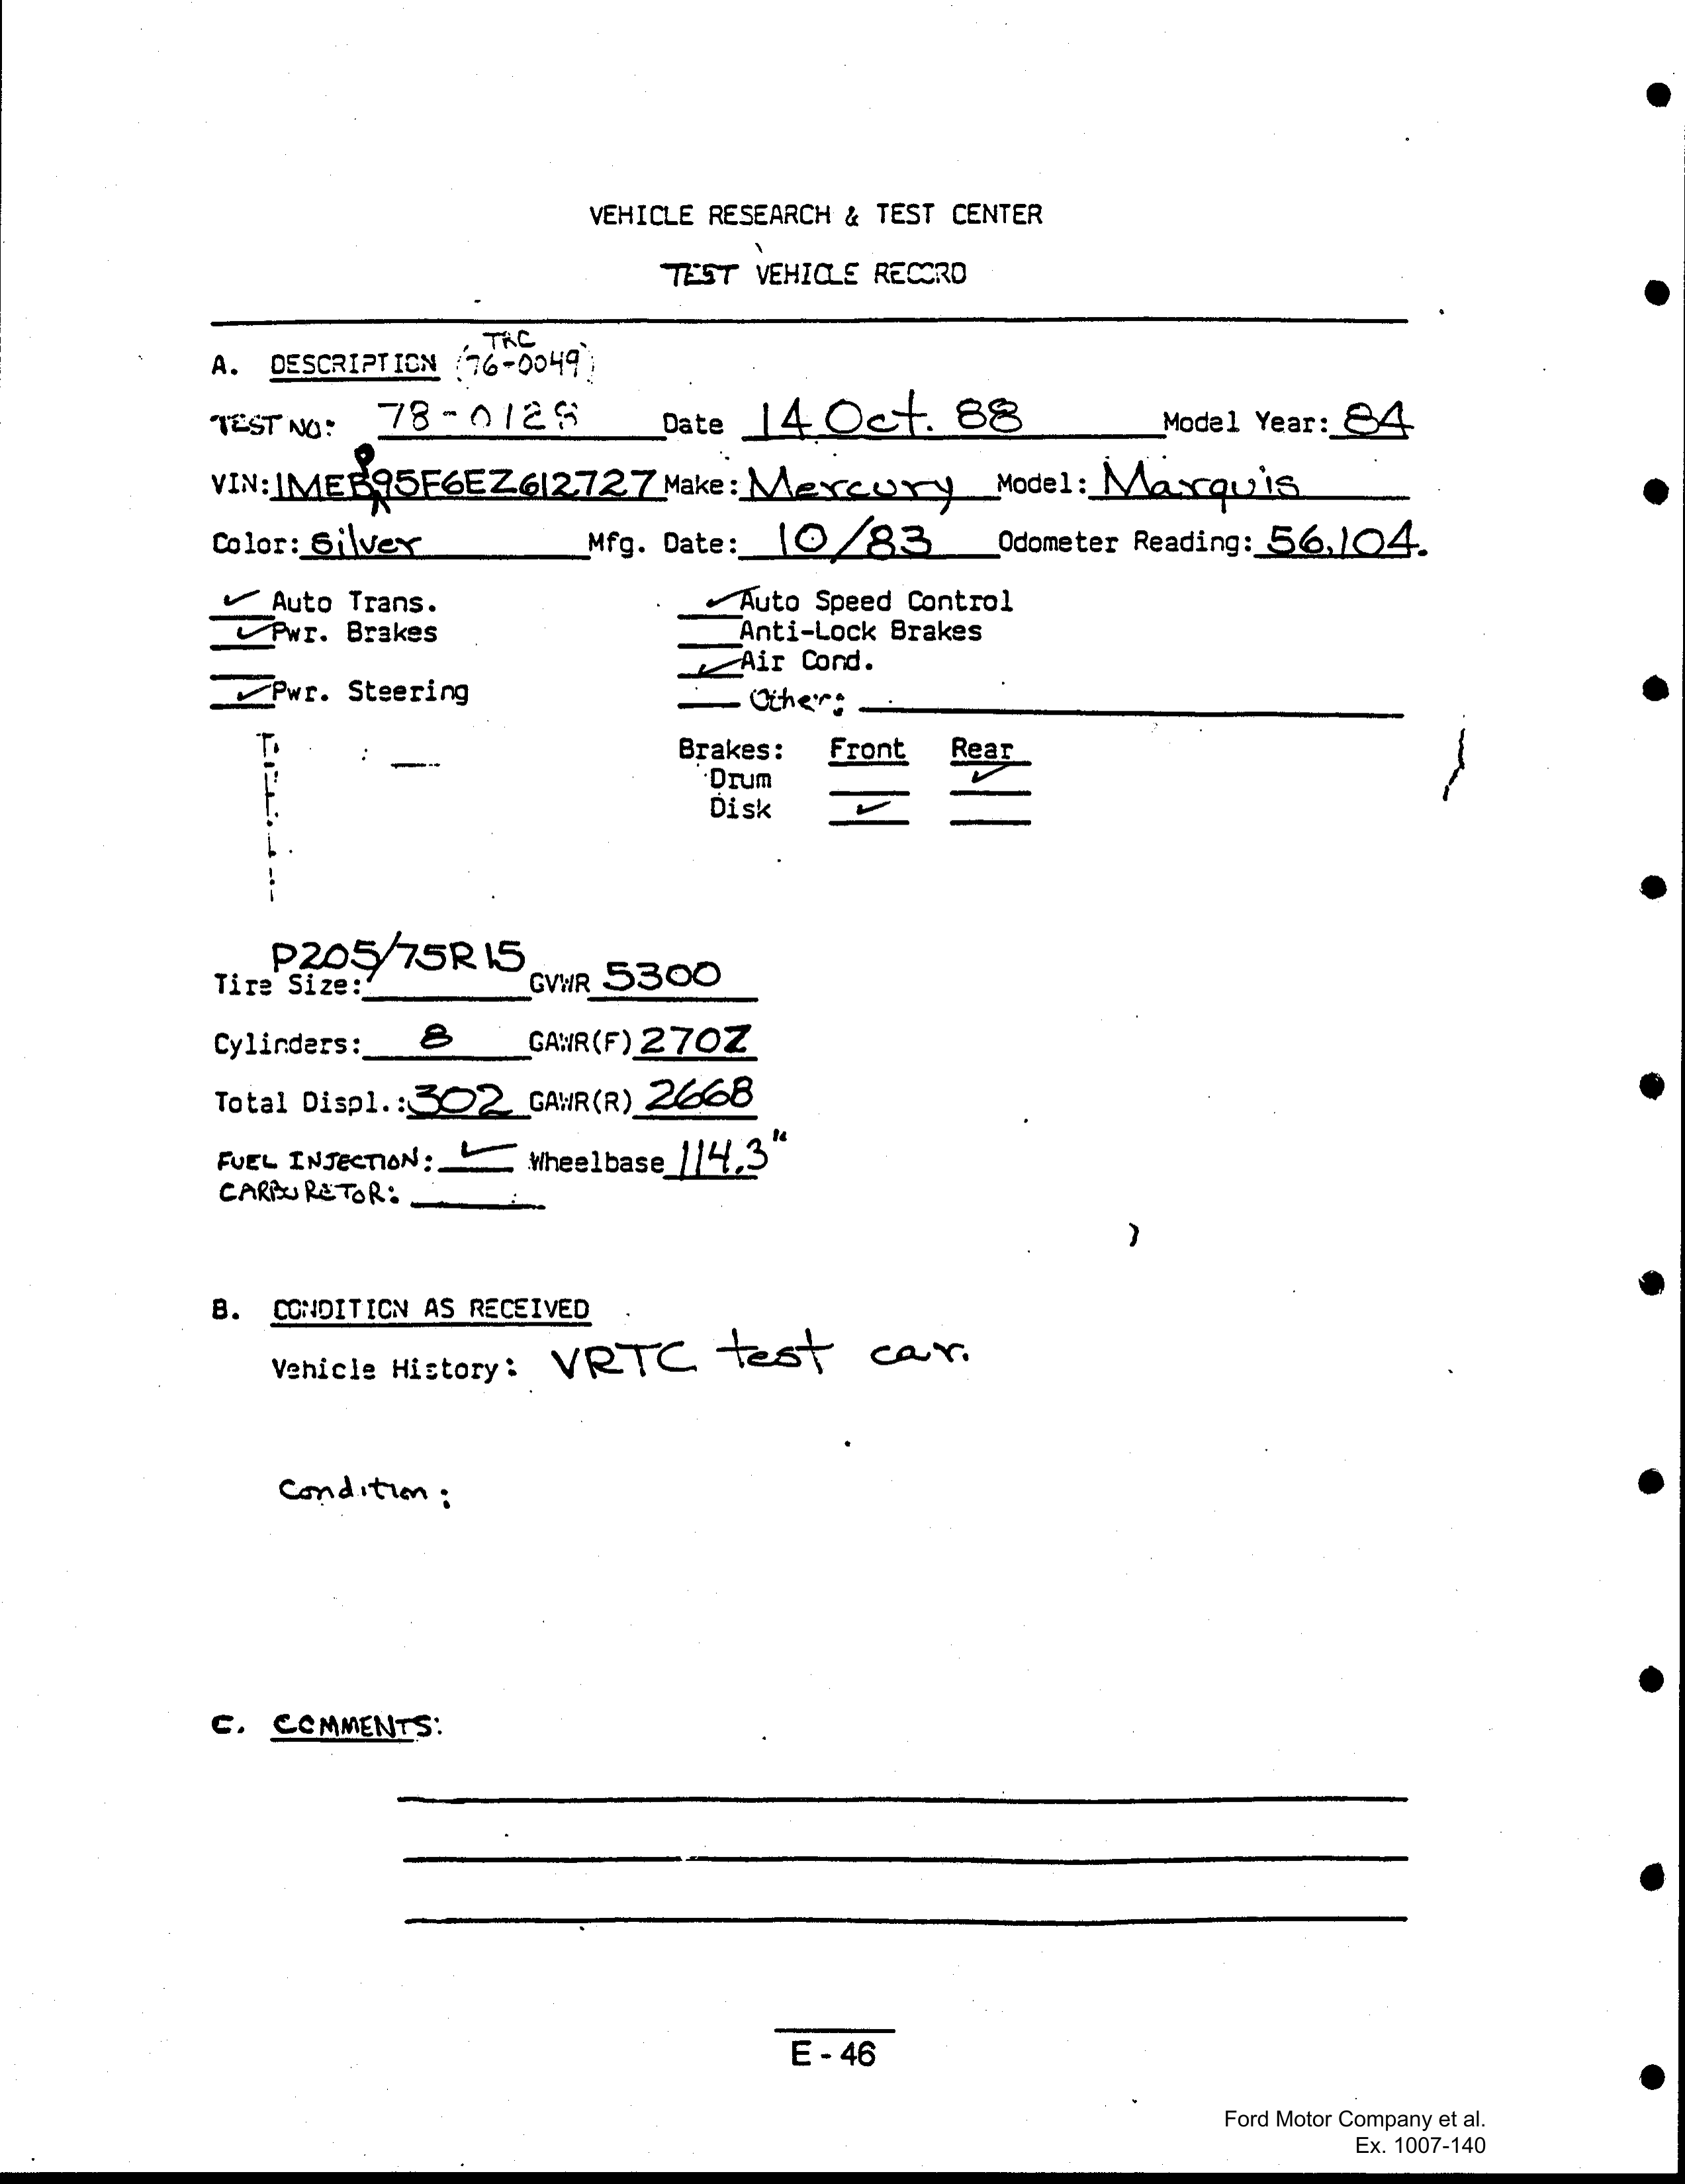 VEHICLE RESEARCH & TEST CENTER
TEST VEHICLE RECORD
TRC
A. DESCRIPTION (76-0049)
TEST NO: 78-0128 Date 14 Oct. 88 Model Year: 84
P
VIN: 1MEB95F6EZ612727 Make: Mercury Model: Marquis
Color: Silver Mfg. Date: 10/83 Odometer Reading: 56,104.
✓ Auto Trans. ✓ Auto Speed Control
✓ Pwr. Brakes Anti-Lock Brakes
✓ Air Cond.
✓ Pwr. Steering Other:
Brakes: Front Rear
Drum ✓
Disk ✓
P205/75R15
Tire Size: GVWR 5300
Cylinders: 8 GAWR(F) 2702
Total Displ.: 302 GAWR(R) 2668
FUEL INJECTION: ✓ Wheelbase 114.3"
CARBURETOR:
B. CONDITION AS RECEIVED
Vehicle History: VRTC test car.
Condition:
C. COMMENTS:
E - 46
Ford Motor Company et al.
Ex. 1007-140